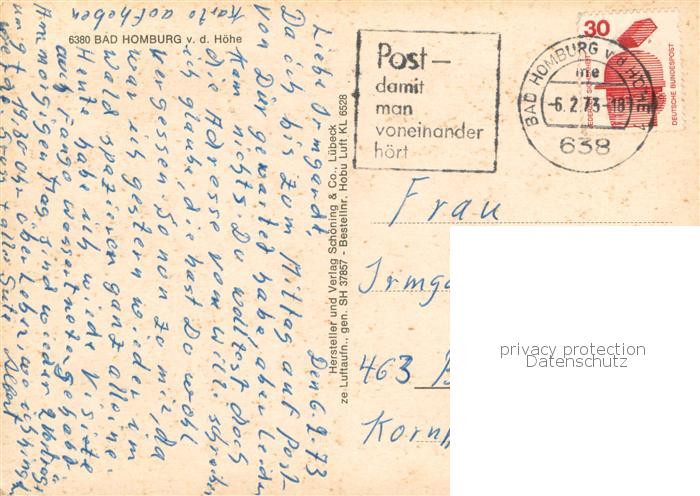 6380 BAD HOMBURG v. d. Höhe
Karte aufheben
Den 6.2.73
Liebe Irmgard,
Da ich bis zum Mittag auf Post
von Dir gewartet habe, aber leider
kam nichts. Du wolltest doch
die Adresse vom Willi schreiben
ich glaube, die hast Du wohl
vergessen. So nun zu mir, da
war ich gestern wieder im
Wald spazieren ganz alleine.
Heute habe ich wieder Visite
auch lange gehabt
Am morgigen Tag sind wieder
um 19.30 Uhr
alles Gute Albert
Hersteller und Verlag Schöning & Co., Lübeck
ze Luftaufn., gen. SH 37857 - Bestellnr. Hobu Luft KL 6528
Post –
damit
man
voneinander
hört
BAD HOMBURG v d HÖHE
me
-6.2.73-18
638
30
DEUTSCHE BUNDESPOST
Frau
Irmga
463
Korn
privacy protection
Datenschutz